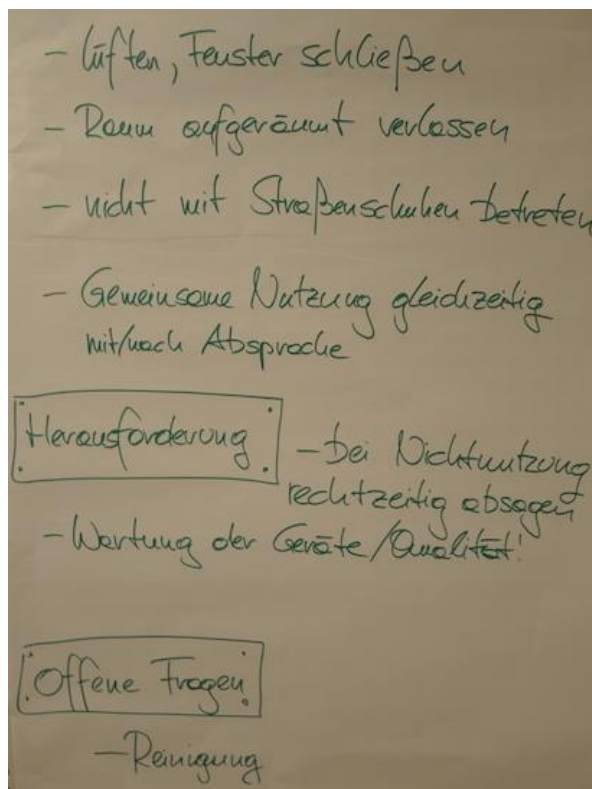 - lüften, Fenster schließen
- Raum aufgeräumt verlassen
- nicht mit Straßenschuhen betreten
- Gemeinsame Nutzung gleichzeitig
mit/nach Absprache
Herausforderung
- bei Nichtnutzung
rechtzeitig absagen
- Wartung der Geräte/Qualität!
Offene Fragen
- Reinigung